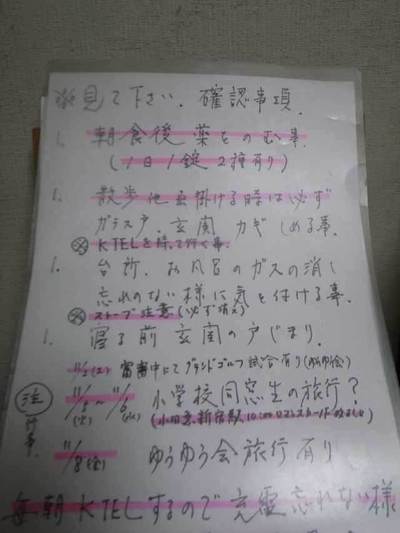 見て下さい. 確認事項.
1. 朝食後 薬をのむ事.
(1日1錠 2種有り)
1. 散歩他出掛ける時は必ず
ガラス戸. 玄関 カギ しめる事.
※ KTELを持って行く事.
1. 台所. お風呂のガスの消し
忘れのない様に気を付ける事.
※ ストーブ注意 (必ず消す)
1. 寝る前 玄関の戸じまり.
グランドゴルフ試合有り
注 行事. 11/5(火) ~ 11/6(水) 小学校同窓生の旅行?
(小田急新宿駅 10:00
11/8(金) ゆうゆう会旅行有り
毎朝KTELするので充電忘れない様